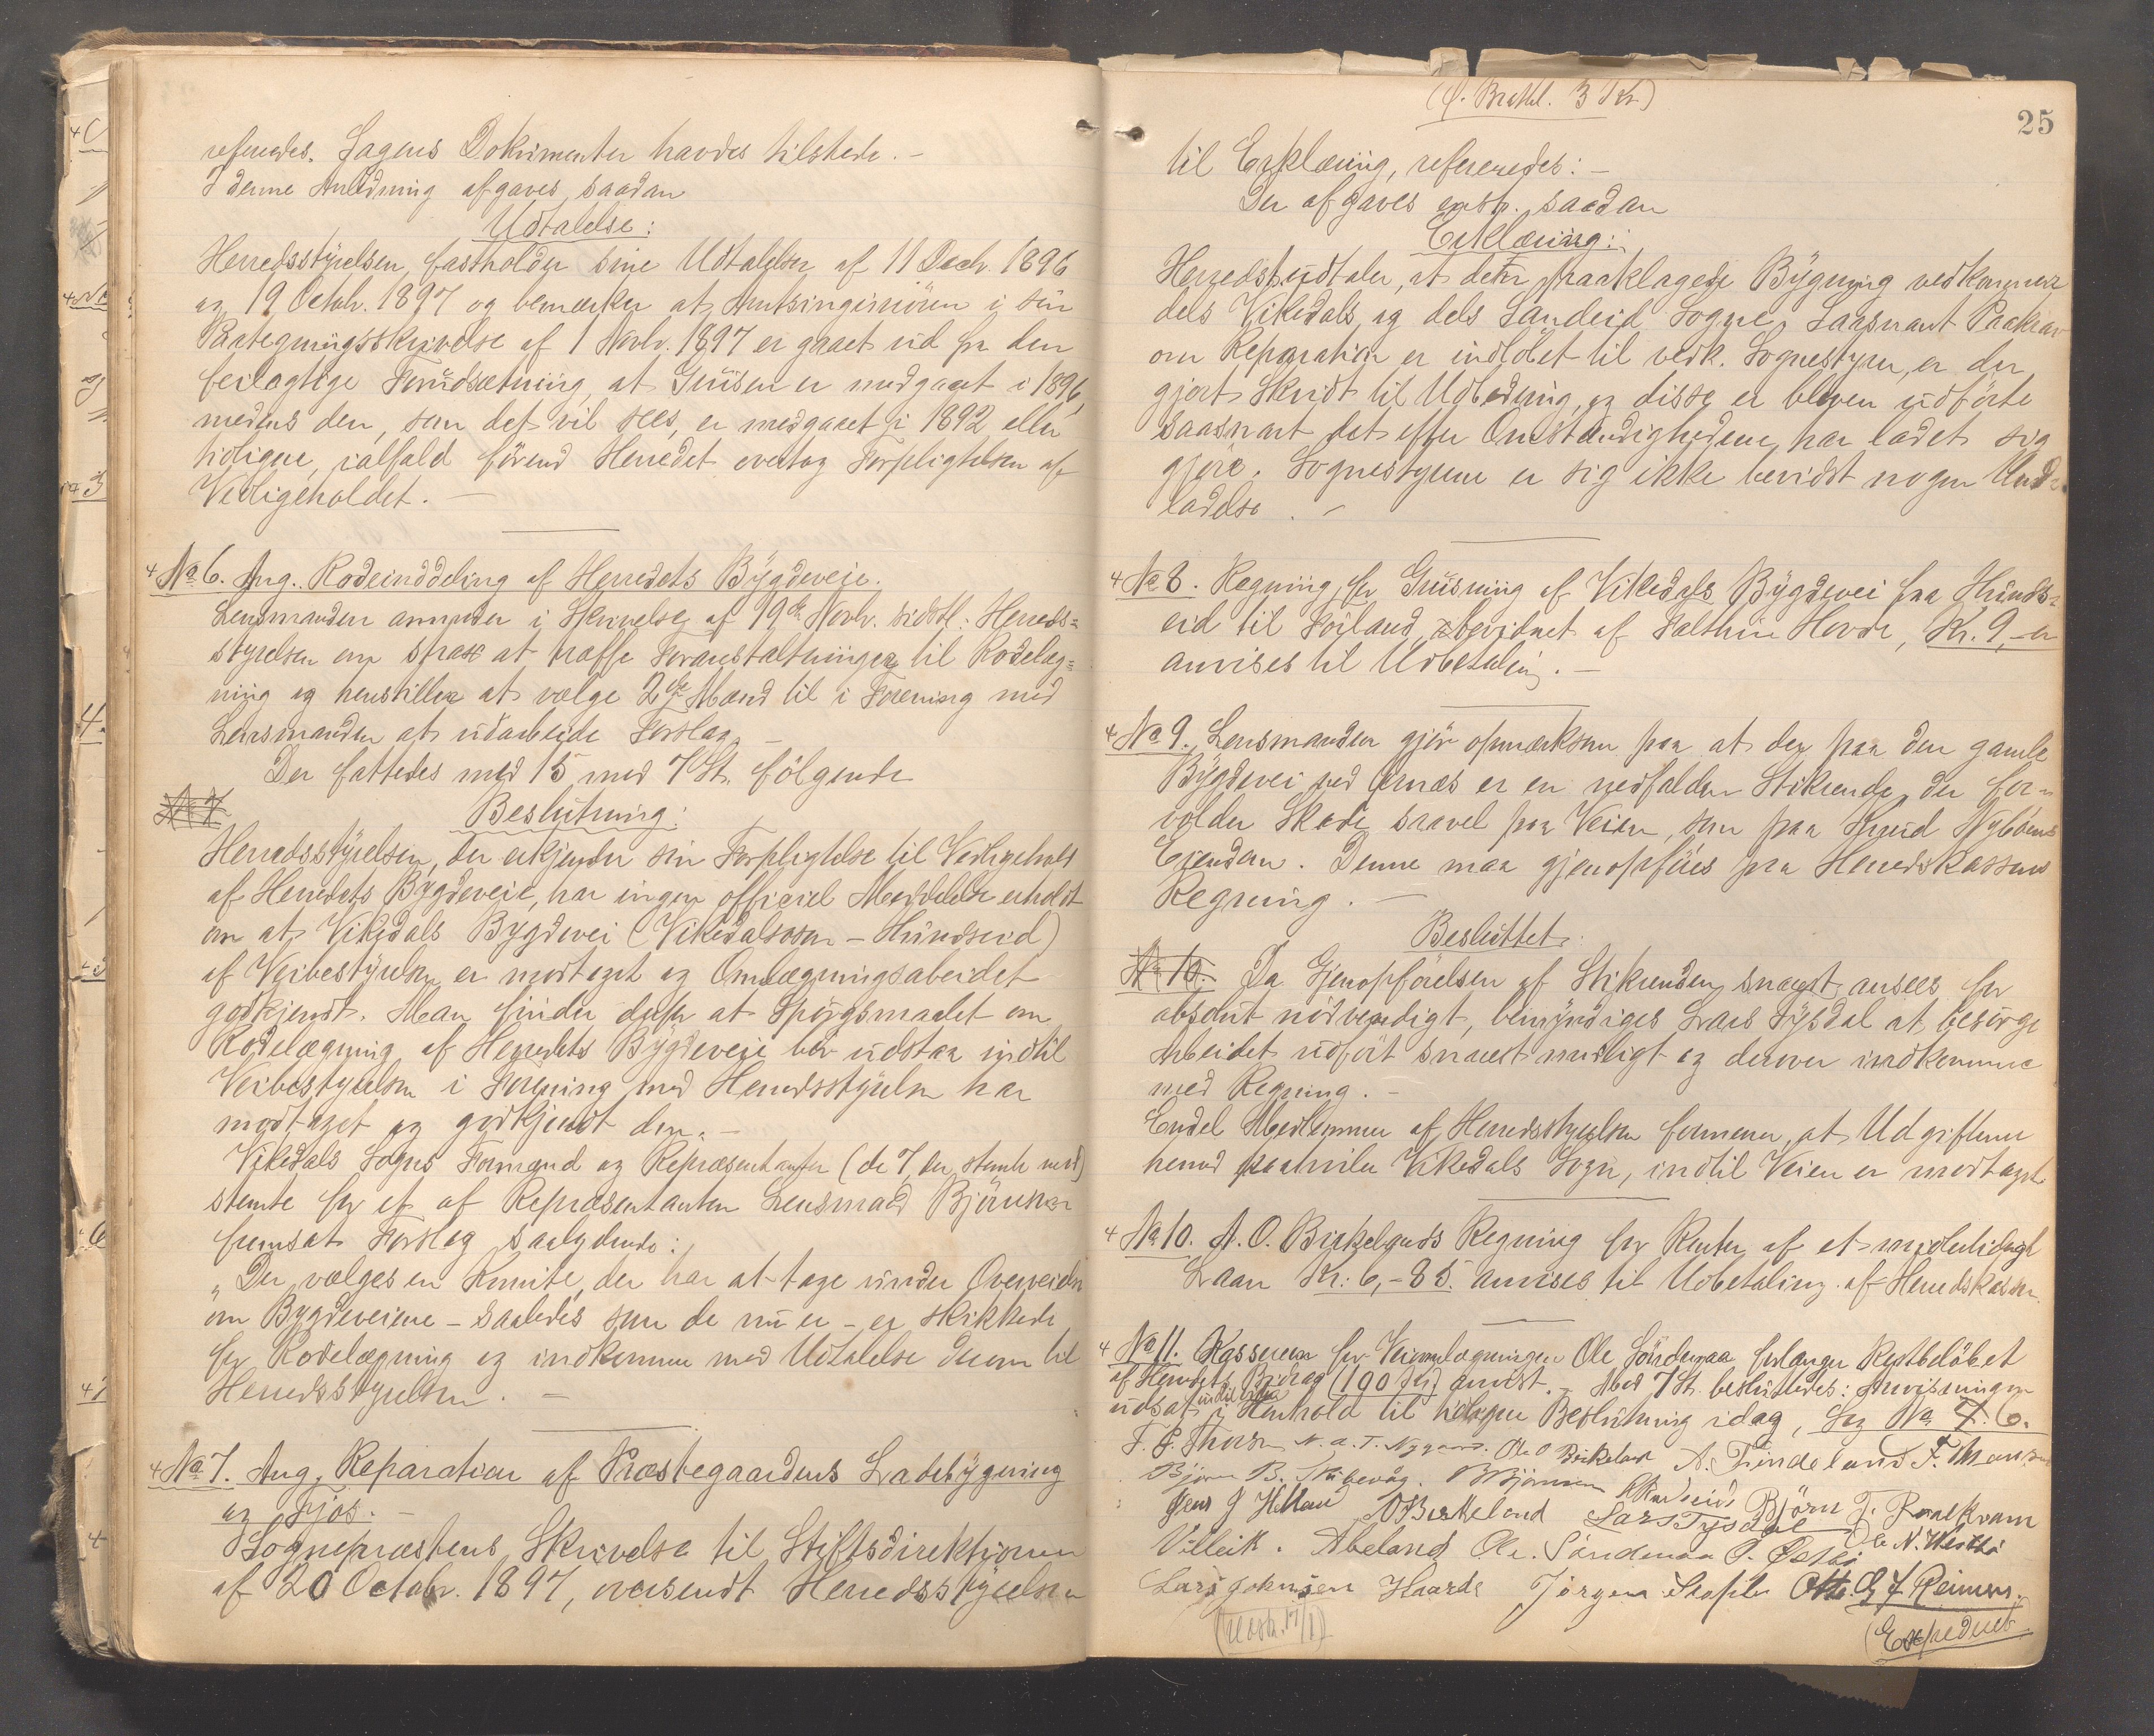 refereredes. Sagens Dokumenter havdes tilstede. -
I denne Anledning afgaves saadan
Udtalelse:
Herredsstyrelsen fastholder sine Udtalelser af 11 Decbr. 1896
og 19 Octob. 1897 og bemærker at Amtsingeniören i sin
Paategningsskrivelse af 1 Novbr. 1897 er gaaet ud fra den
feilagtige Forudsætning, at Grusen er medgaaet i 1896,
medens den, som det vil sees, er medgaaet i 1892 eller
tidligere, ialfald förend Herredet overtog Forpligtelsen af
Vedligeholdet. -
No 6. Ang. Rodeinddeling af Herredets Bygdeveie.
Lensmanden anmoder i Skrivelse af 19de Novbr. sidstl. Herreds=
styrelsen om strax at træffe Foranstaltninger til Rodelæg=
ning og henstiller at vælge 2de Mænd til i Forening med
Lensmanden at udarbeide Forslag. -
Der fattedes med 15 mod 7 St. fölgende
No 7
Beslutning:
Herredsstyrelsen, der erkjender sin Forpligtelse til Vedligehold
af Herredets Bygdeveie, har ingen officiel Meddelelse erholdt
om at Vikedals Bygdevei (Vikedalsosen - Hundseid)
af Veibestyrelsen er modtaget og Omlægningsarbeidet
godkjendt. Man finder derfor at Spörgsmaalet om
Rodelægning af Herredets Bygdeveie bör udstaa indtil
Veibestyrelsen i Forening med Herredsstyrelsen har
modtaget og godkjendt den. -
Vikedals Sogns Formand og Repræsentanter (de 7, der stemte mod)
stemte for et af Repræsentanten Lensmand Björnsen
fremsat Forslag saalydende:
"Der vælges en Komite, der har at tage under Overveielse
om Bygdeveiene - saaledes som de nu er - er skikkede
for Rodelægning og indkomme med Udtalelse derom til
Herredsstyrelsen. -
No 7. Ang. Reparation af Præstegaardens Ladebygning
og Fjös. -
Sognepræstens Skrivelse til Stiftsdirektionen
af 20 Octobr. 1897, oversendt Herredsstyrelsen
3 Kr.)
25
til Erklæring, refereredes: -
Der afgaves enst. saadan
Erklæring:
Herredsst. udtaler, at den paaklagede Bygning vedkommer
dels Vikedals og dels Sandeid Sogne. Saasnart Paakrav
om Reparation er indlöbet til vedk. Sognestyrer, er der
gjort Skridt til Udbedring, og disse er bleven udförte
saasnart det efter Omstændighederne har ladet sig
gjöre. Sognestyrene er sig ikke bevidst nogen Und=
ladelse. -
No 8. Regning for Grusning af Vikedals Bygdevei fra Hunds=
eid til Foiland, bevidnet af Falthin Hovde, Kr. 9,- er
anvises til Udbetaling. -
No 9. Lensmanden gjör opmærksom paa at der paa den gamle
Bygdevei ved Ørnæs er en nedfalden Stikrende, der for=
volder Skade saavel paa Veien, som paa Knud Nyböens
Eiendom. Denne maa gjenopföres for Herredskassens
Regning. -
Besluttet:
No 10. Da Gjenopförelsen af Stikrenden snarest ansees for
absolut nödvendigt, bemyndiges Lars Tysdal at besörge
Arbeidet udfört snarest muligt og derover indkomme
med Regning. -
Endel Medlemmer af Herredsstyrelsen formener, at Udgifterne
herved paahviler Vikedals Sogn, indtil Veien er modtaget.
No 10. A. O. Birkelands Regning for Renter af et midlertidigt
Laan Kr. 6,-85. anvises til Udbetaling af Herredskassen.
No 11. Kassereren for Veiomlægningen Ole Söndenaa forlanger Restbelöbet
af Herredets Bidrag (100 Kr) anvist. - Med 7 St. besluttedes: Anvisningen
udsat indtil videre i Henhold til tidligere Beslutning idag, Sag No 7. 6.
N. A. T. Nygaard. Ole O Birkeland A. Tindeland
Björn B. BBjörnsen Björn T. Raalkvam
Jens J Helland ABirkeland Lars Tysdal
Villeik. Abeland Ole. Söndenaa O. Østbö
Lars Johnsen Haarde Jörgen Otto Chr F Reimers.
(Udsk. 17/1)
(Expederet)